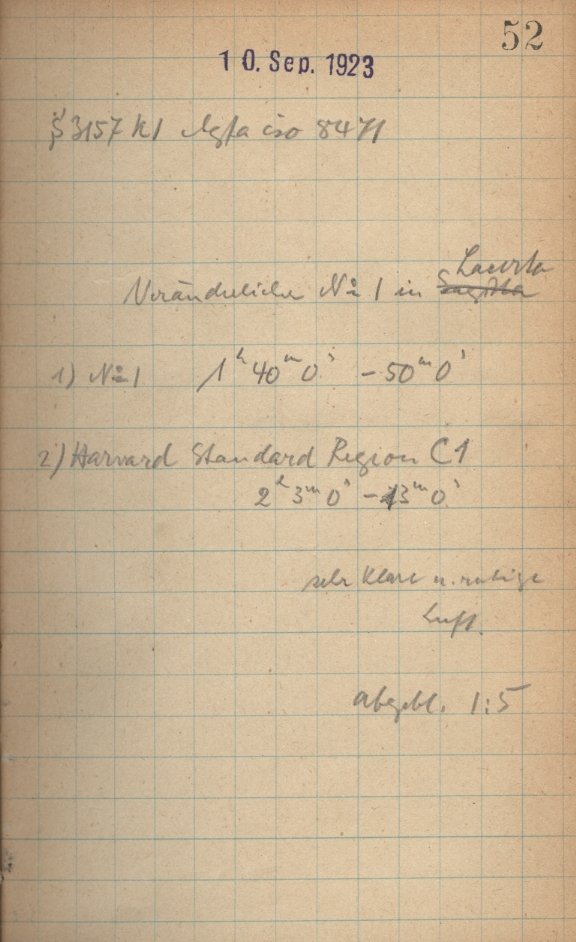 52
10. Sep. 1923
§ 3157 K1 Agfa iso 8471
Lacerta
Veränderliche No 1 in Sagitta
1) No 1 1ʰ 40ᵐ 0ˢ – 50ᵐ 0ˢ
2) Harvard Standard Region C1
2ʰ 3ᵐ 0ˢ – 13ᵐ 0ˢ
sehr klare u. ruhige
Luft.
abgebl. 1:5